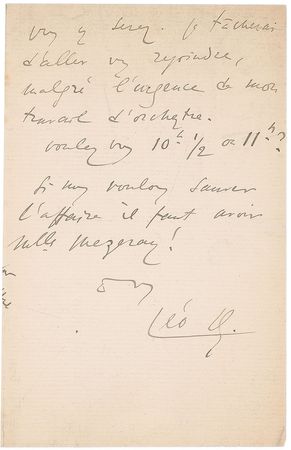 vous y serez. je tâcherai
d'aller vous rejoindre,
malgré l'urgence de mon
travail d'orchestre.
voulez vous 10h 1/2 ou 11h?
Si nous voulons sauver
l'affaire il faut avoir
Mlle Mezeray!
à vous
Léo D.